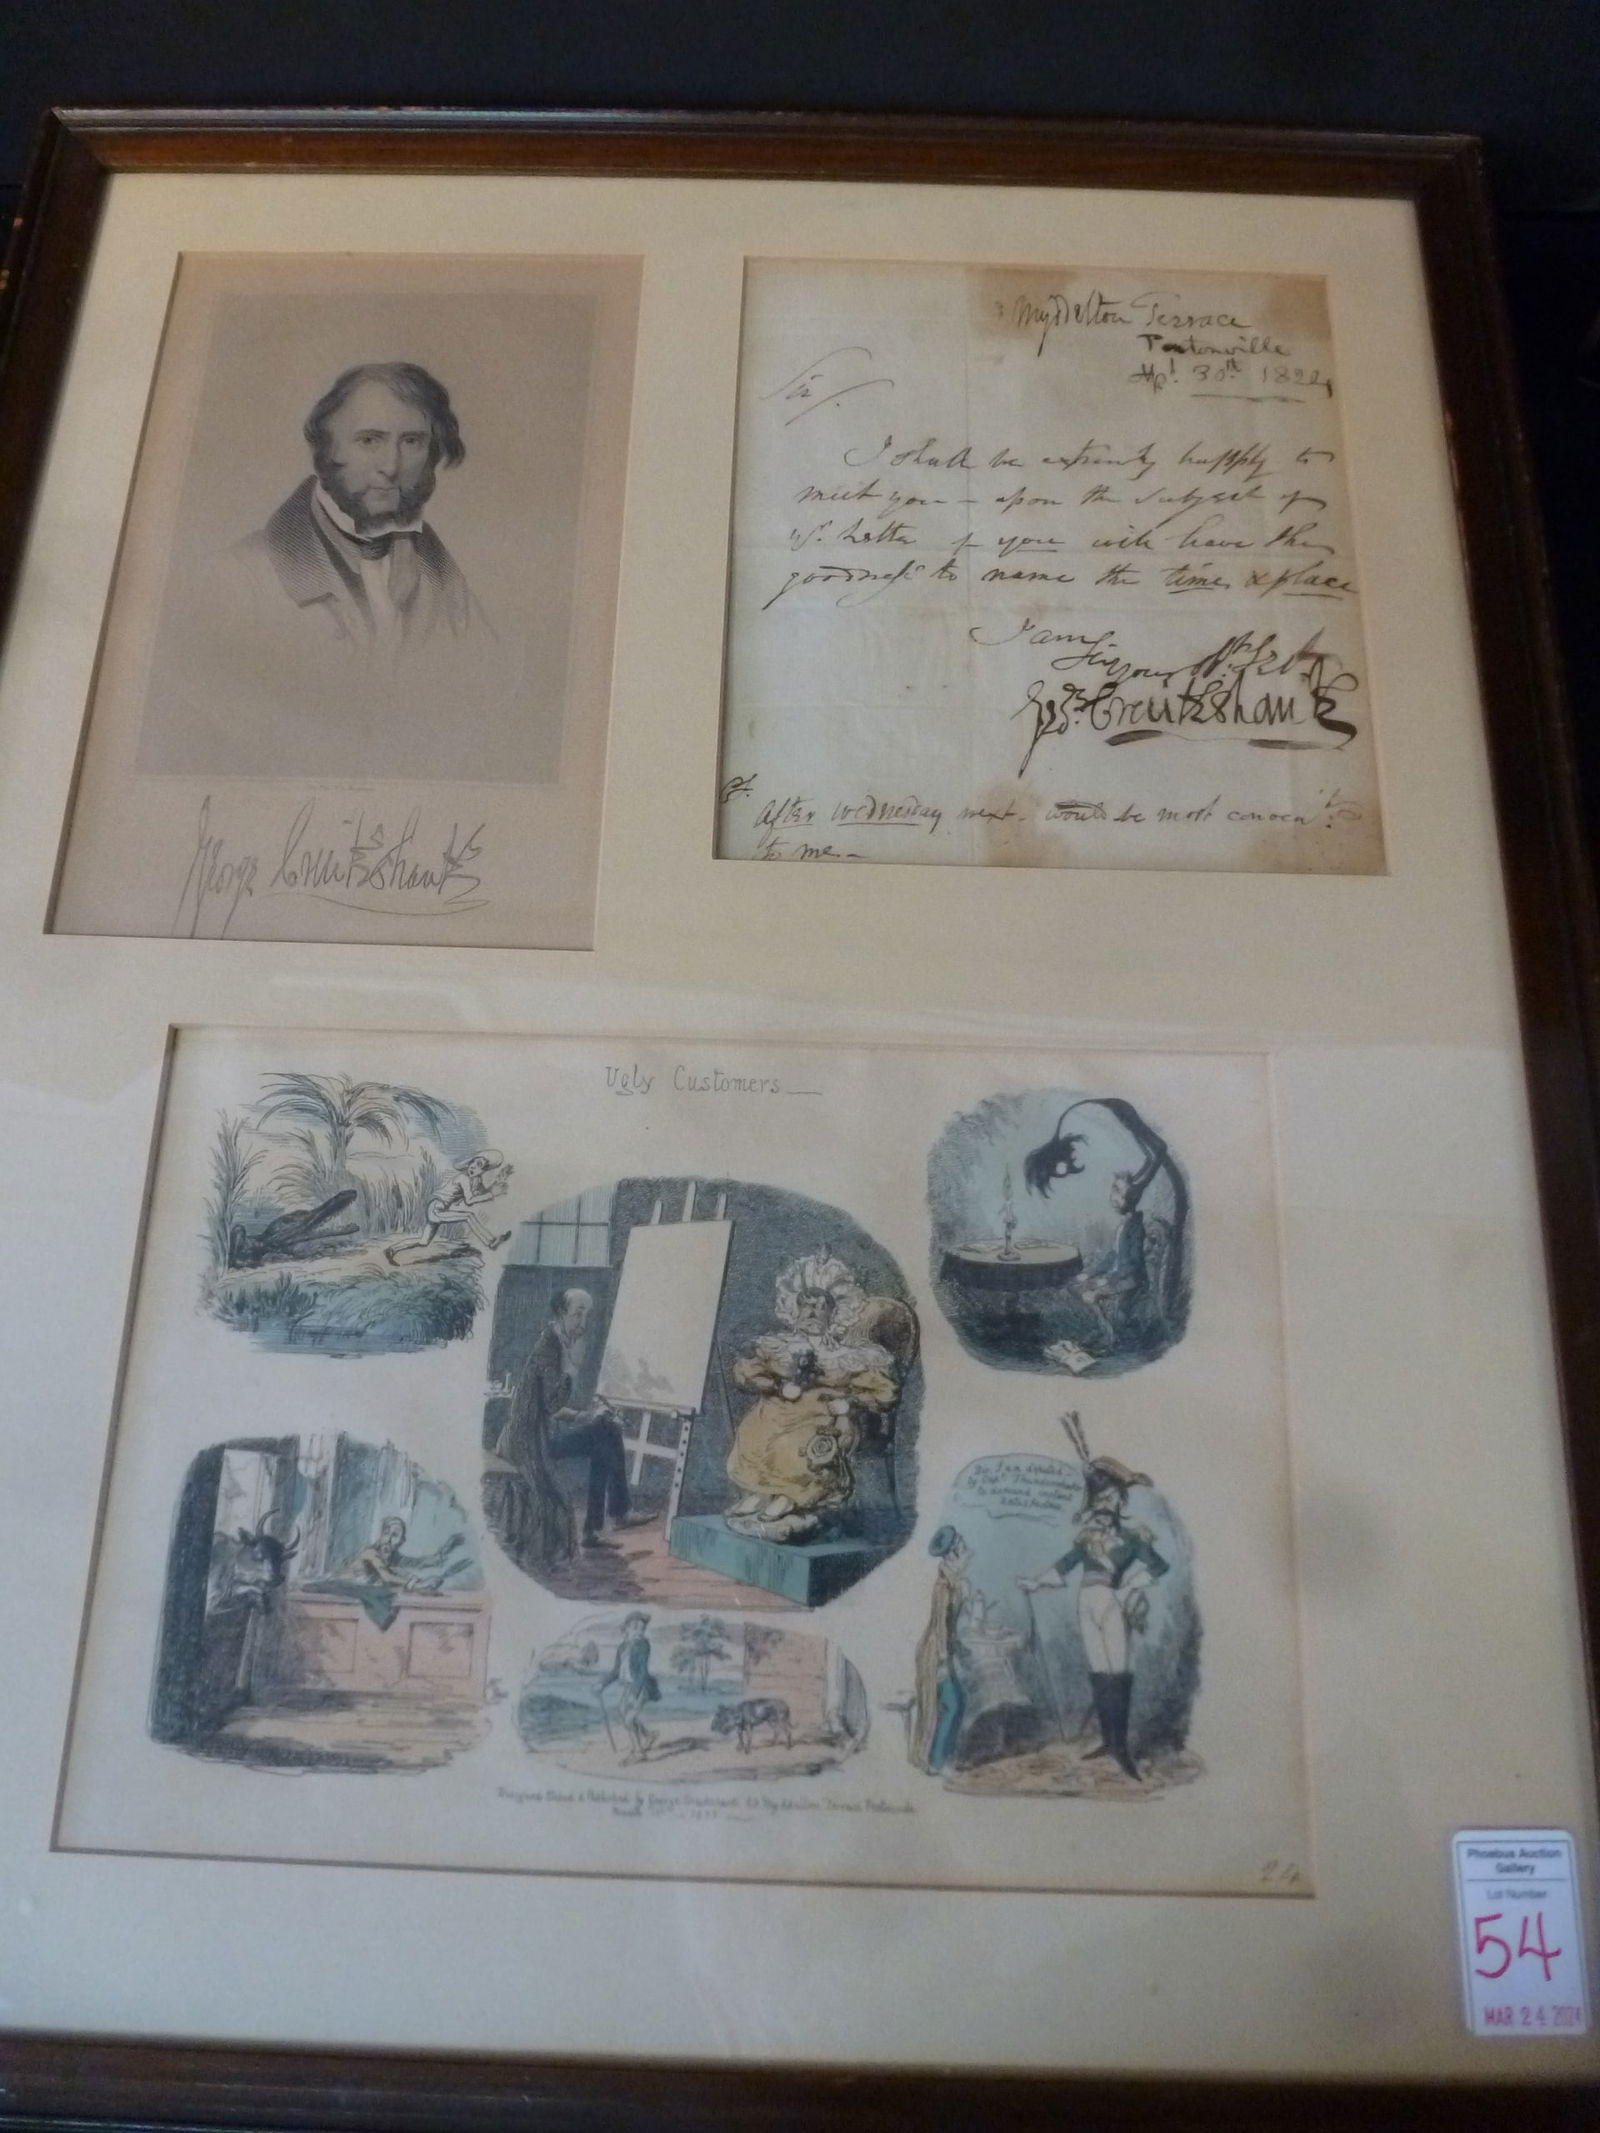 George Cruikshank
Myddelton Terrace
Pentonville
Apl. 30th 182
Sir/.
I shall be extremely happy to
meet you - upon the subject of
yr. Letter if you will have the
goodness to name the time & place
I am
Sir your
Geo. Cruikshank
After Wednesday next - would be most conven
to me -
Ugly Customers
Sir, I am deputed
by Capt. Thunder
to demand instant
Satisfaction
Designed Etched & Published by George Cruikshank 23 Myddelton Terrace Pentonville
Phoebus Auction
Gallery
Lot Number
54
MAR 24 2024